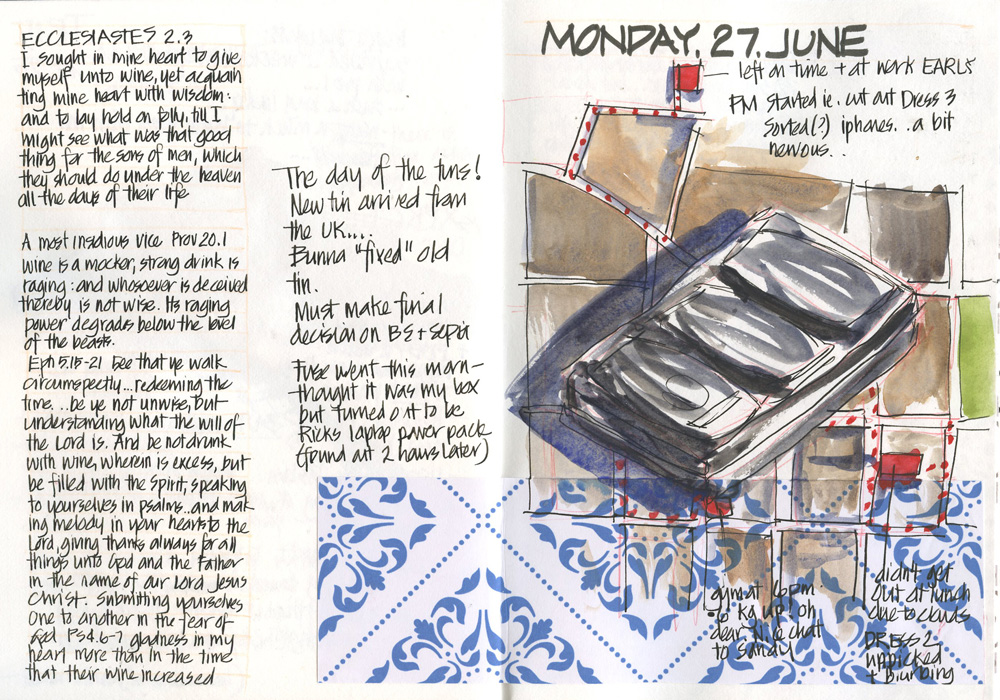 ECCLESIASTES 2.3
I sought in mine heart to give
myself unto wine, yet acquain
ting mine heart with wisdom:
and to lay hold on folly, till I
might see what was that good
thing for the sons of men, which
they should do under the heaven
all the days of their life
A most insidious vice Prov 20.1
wine is a mocker, strong drink is
raging: and whosoever is deceived
thereby is not wise. Its raging
power degrads below the level
of the beasts.
Eph 5.15-21 See that ye walk
circumspectly... redeeming the
time... be ye not unwise, but
understanding what the will of
the Lord is. And be not drunk
with wine, wherein is excess, but
be filled with the Spirit; speaking
to yourselves in psalms.. and mak
ing melody in your hearts to the
Lord, giving thanks always for all
things unto God and the Father
in the name of our Lord Jesus
Christ. Submitting yourselves
one to another in the fear of
God Ps 4.6-7 gladness in my
heart more than in the time
that their wine increased
The day of the tins!
New tin arrived from
the UK....
Bunna "fixed" old
tin.
Must make final
decision on BE + Sepia
Fuse went this morn-
thought it was my box
but turned out to be
Ricks laptop power pack
(found out 2 hours later)
MONDAY. 27. JUNE
left on time + at work EARLY
PM started ie. cut out Dress 3
Sorted(?) iphones.. a bit
nervous..
gym at 6pm
kg up! oh
dear. Nice chat
to Sandy
didn't get
out at lunch
due to clouds
DRESS 2
unpicked
+ blurbing